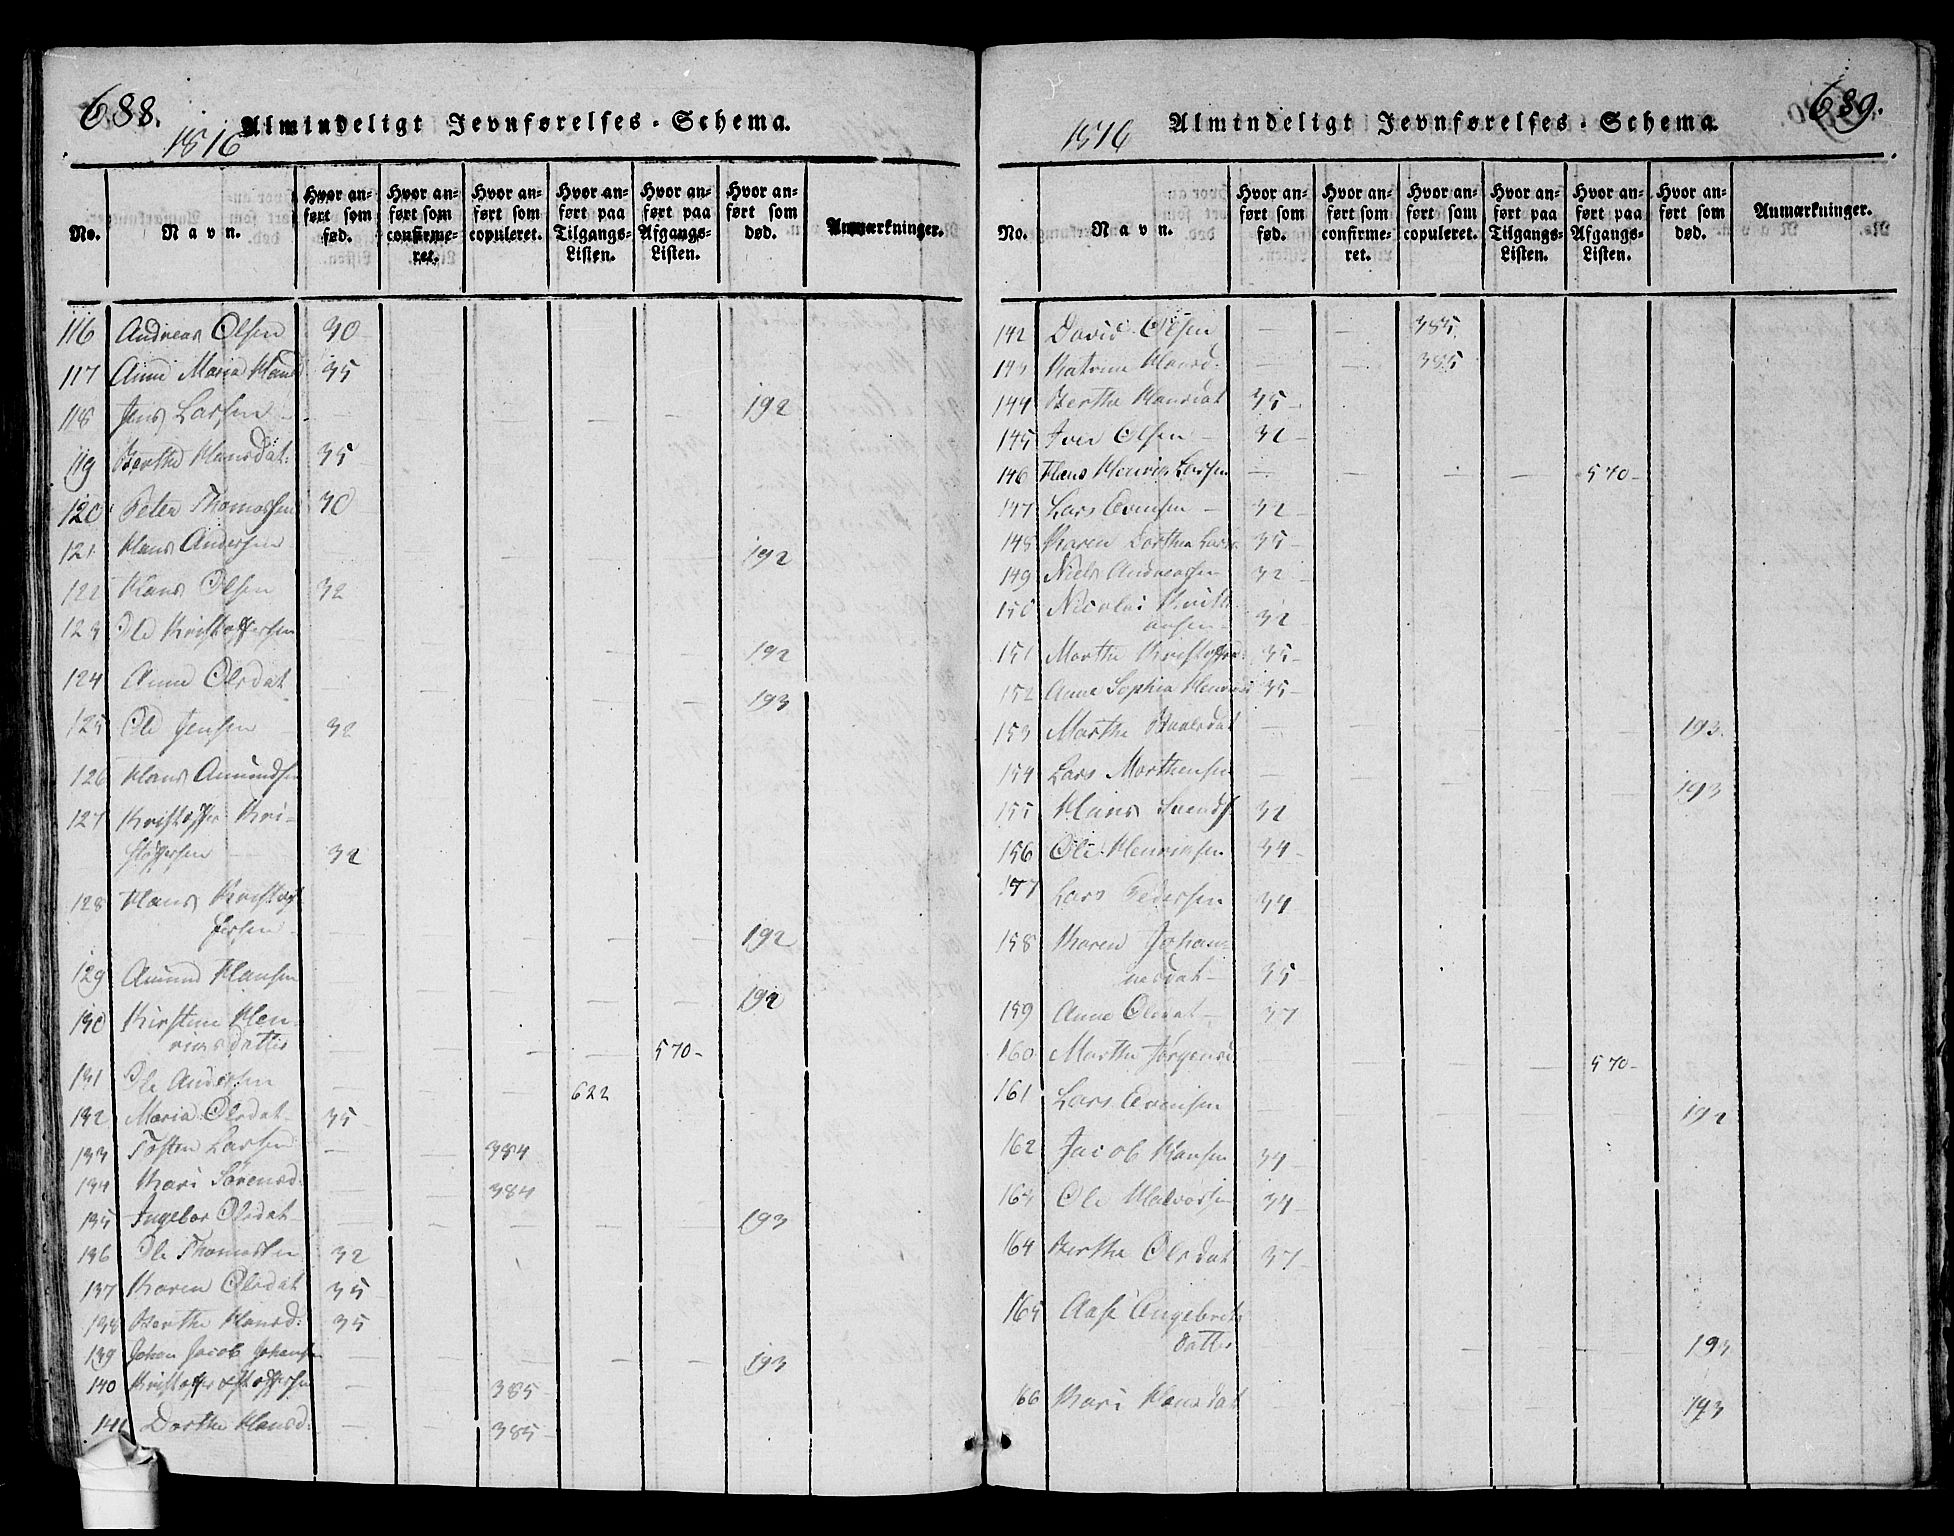 688.
1816
Almindeligt Jevnførelses-Schema.
No.
Navn.
Hvor anført som fød.
Hvor anført som confirmeret.
Hvor anført som copuleret.
Hvor anført paa Tilgangs-Listen.
Hvor anført paa Afgangs-Listen.
Hvor anført som død.
Anmærkninger.
116 Andreas Olsen 30
117 Anne Maria Hansd 35
118 Jens Larsen - - - - - 192
119 Berthe Hansdat: 35
120 Peter Thomassen 30
121 Hans Andersen - - - - - 192
122 Hans Olsen 32
123 Ole Kristoffersen - - - - - 192
124 Anne Olsdat - - - - - 193
125 Ole Jensen - 32
126 Hans Amundsen
127 Kristoffer Kri-
stoffersen - 32
128 Hans Kristof
fersen - - - - - 192
129 Amund Hansen - - - - - 192
130 Kirstine Hen-
riksdatter - - - - 570-
131 Ole Andersen - - - 622
132 Maria Olsdat 35
133 Tosten Larsen - - 384
134 Kari Sørensd. - - 384
135 Ingebor Olsdat - - - - - 193
136 Ole Thomassen 32
137 Karen Olsdat 35
138 Berthe Hansd: 35
139 Johan Jacob Johansen - - - - - 193
140 Kristoffer Kristoffersen - - 385
141 Dorthe Hansd: - - 385
689.
1816
Almindeligt Jevnførelses-Schema.
No.
Navn.
Hvor anført som fød.
Hvor anført som confirmeret.
Hvor anført som copuleret.
Hvor anført paa Tilgangs-Listen.
Hvor anført paa Afgangs-Listen.
Hvor anført som død.
Anmærkninger.
142 David Olsen - - 385
143 Katrine Hansd. - - 385
144 Berthe Hansdat 35-
145 Iver Olsen - 32-
146 Hans Henrik Larsen - - - - 570-
147 Lars Evensen - 32-
148 Karen Dorthea Lars. 35-
149 Niels Andreassen 32-
150 Nicolai Kristi
ansen - 32-
151 Marthe Kristoffersd: 35-
152 Anne Sophia Henriksd 35-
153 Marthe Paalsdat - - - - - 193.
154 Lars Morthensen - - - - - 193
155 Hans Svends. 32
156 Ole Henriksen 34-
157 Lars Pedersen 34-
158 Karen Johan-
nesdat - 35
159 Anne Olsdat - 37
160 Marthe Jørgensd - - - - 570-
161 Lars Evensen - - - - - 192
162 Jacob Hansen 34-
163 Ole Halvorsen 34-
164 Berthe Olsdat 37-
165 Aase Engebrets
datter - - - - - 193
66 Kari Hansdat - - - - - 193